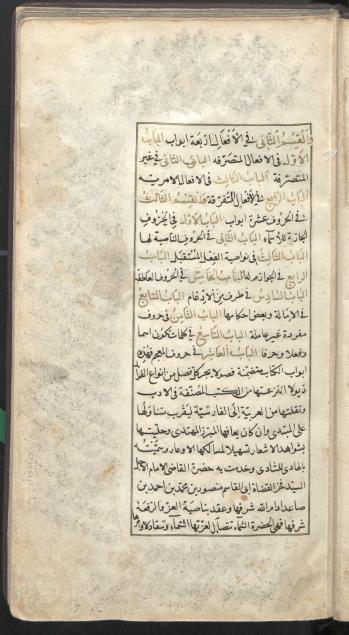 والقسم الثانى فى الافعال اربعة ابواب الباب
الاول فى الافعال المتصرفه الباب الثانى فى غير
المتصرفة الباب الثالث فى الافعال الامرية
الباب الرابع فى الافعال المتفرقة والقسم الثالث
فى الحروف عشرة ابواب الباب الاول فى الحروف
الجازة للاسماء الباب الثانى فى الحروف الناصبة لها
الباب الثالث فى نواصبة الفعل المستقبل الباب
الرابع فى الجوازم له الباب الخامس فى الحروف العاطفة
الباب السادس فى طرف من الادغام الباب السابع
فى الامالة وبعض احكامها الباب الثامن فى حروف
مفردة غير عاملة الباب التاسع فى كلمات تكون اسما
وفعلا وحرفا الباب العاشر فى حروف المعجم فهذه
ابواب الكتاب متضمنة فصولا يجر كل فصل من انواع
ذيولا انتزعتها من الكتب المصنفة فى الادب
ونقلتها من العربية الى الفارسية ليقرب متناولها
على المبتدى وان كان يعافها المبرز المنتهى وحليتها
بشواهد الاشعار تسهيلا لمسالكها الاوعار وسميته
بالهادى للشادى وخدمت به حضرة القاضى الامام
السيد فخر القضاة ابى القاسم منصور بن محمد بن احمد بن
صاعد ادام الله شرفها وعقد بناصية العز والرفعة
شرفها فهى الحضرة الشماء تتضاءل لعزتها السماء